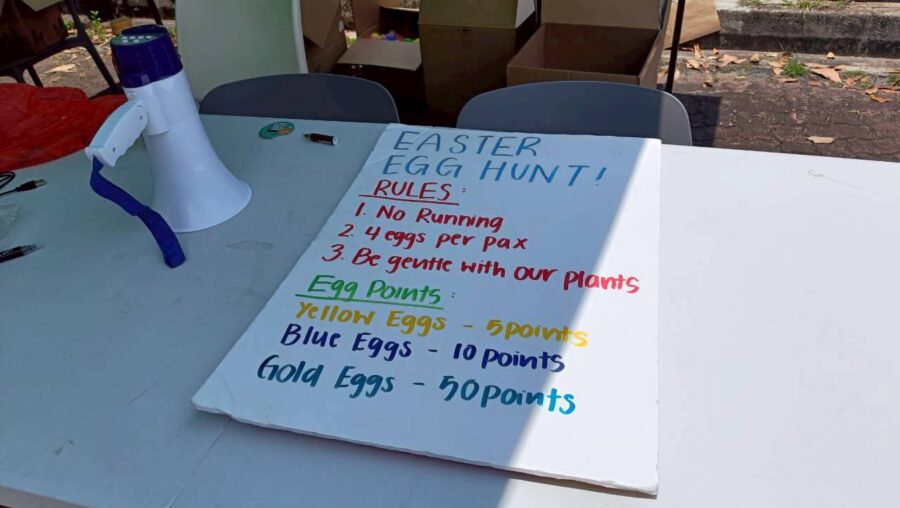 EASTER
EGG HUNT!
RULES:
1. No Running
2. 4 eggs per pax
3. Be gentle with our plants
Egg Points:
Yellow Eggs - 5points
Blue Eggs - 10 points
Gold Eggs - 50points